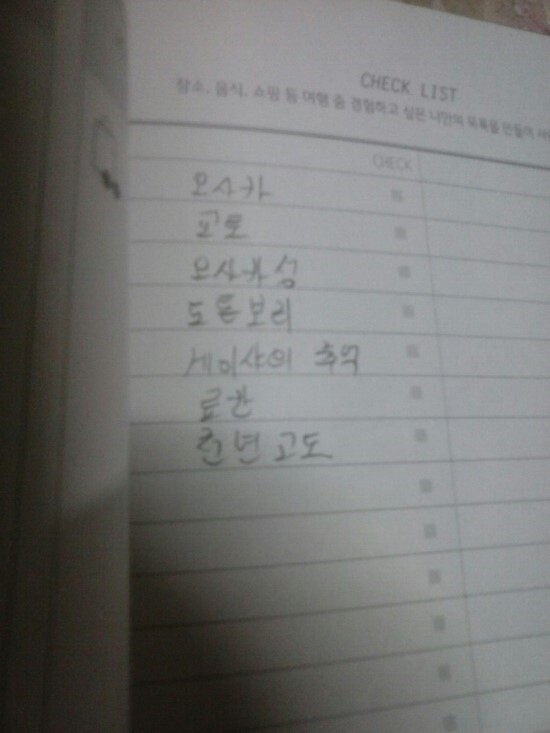 CHECK LIST
장소, 음식, 쇼핑 등 여행 중 경험하고 싶은 나만의 목록을 만들어
CHECK
오사카
교토
오사카성
도톤보리
게이샤의 추억
료칸
천년고도